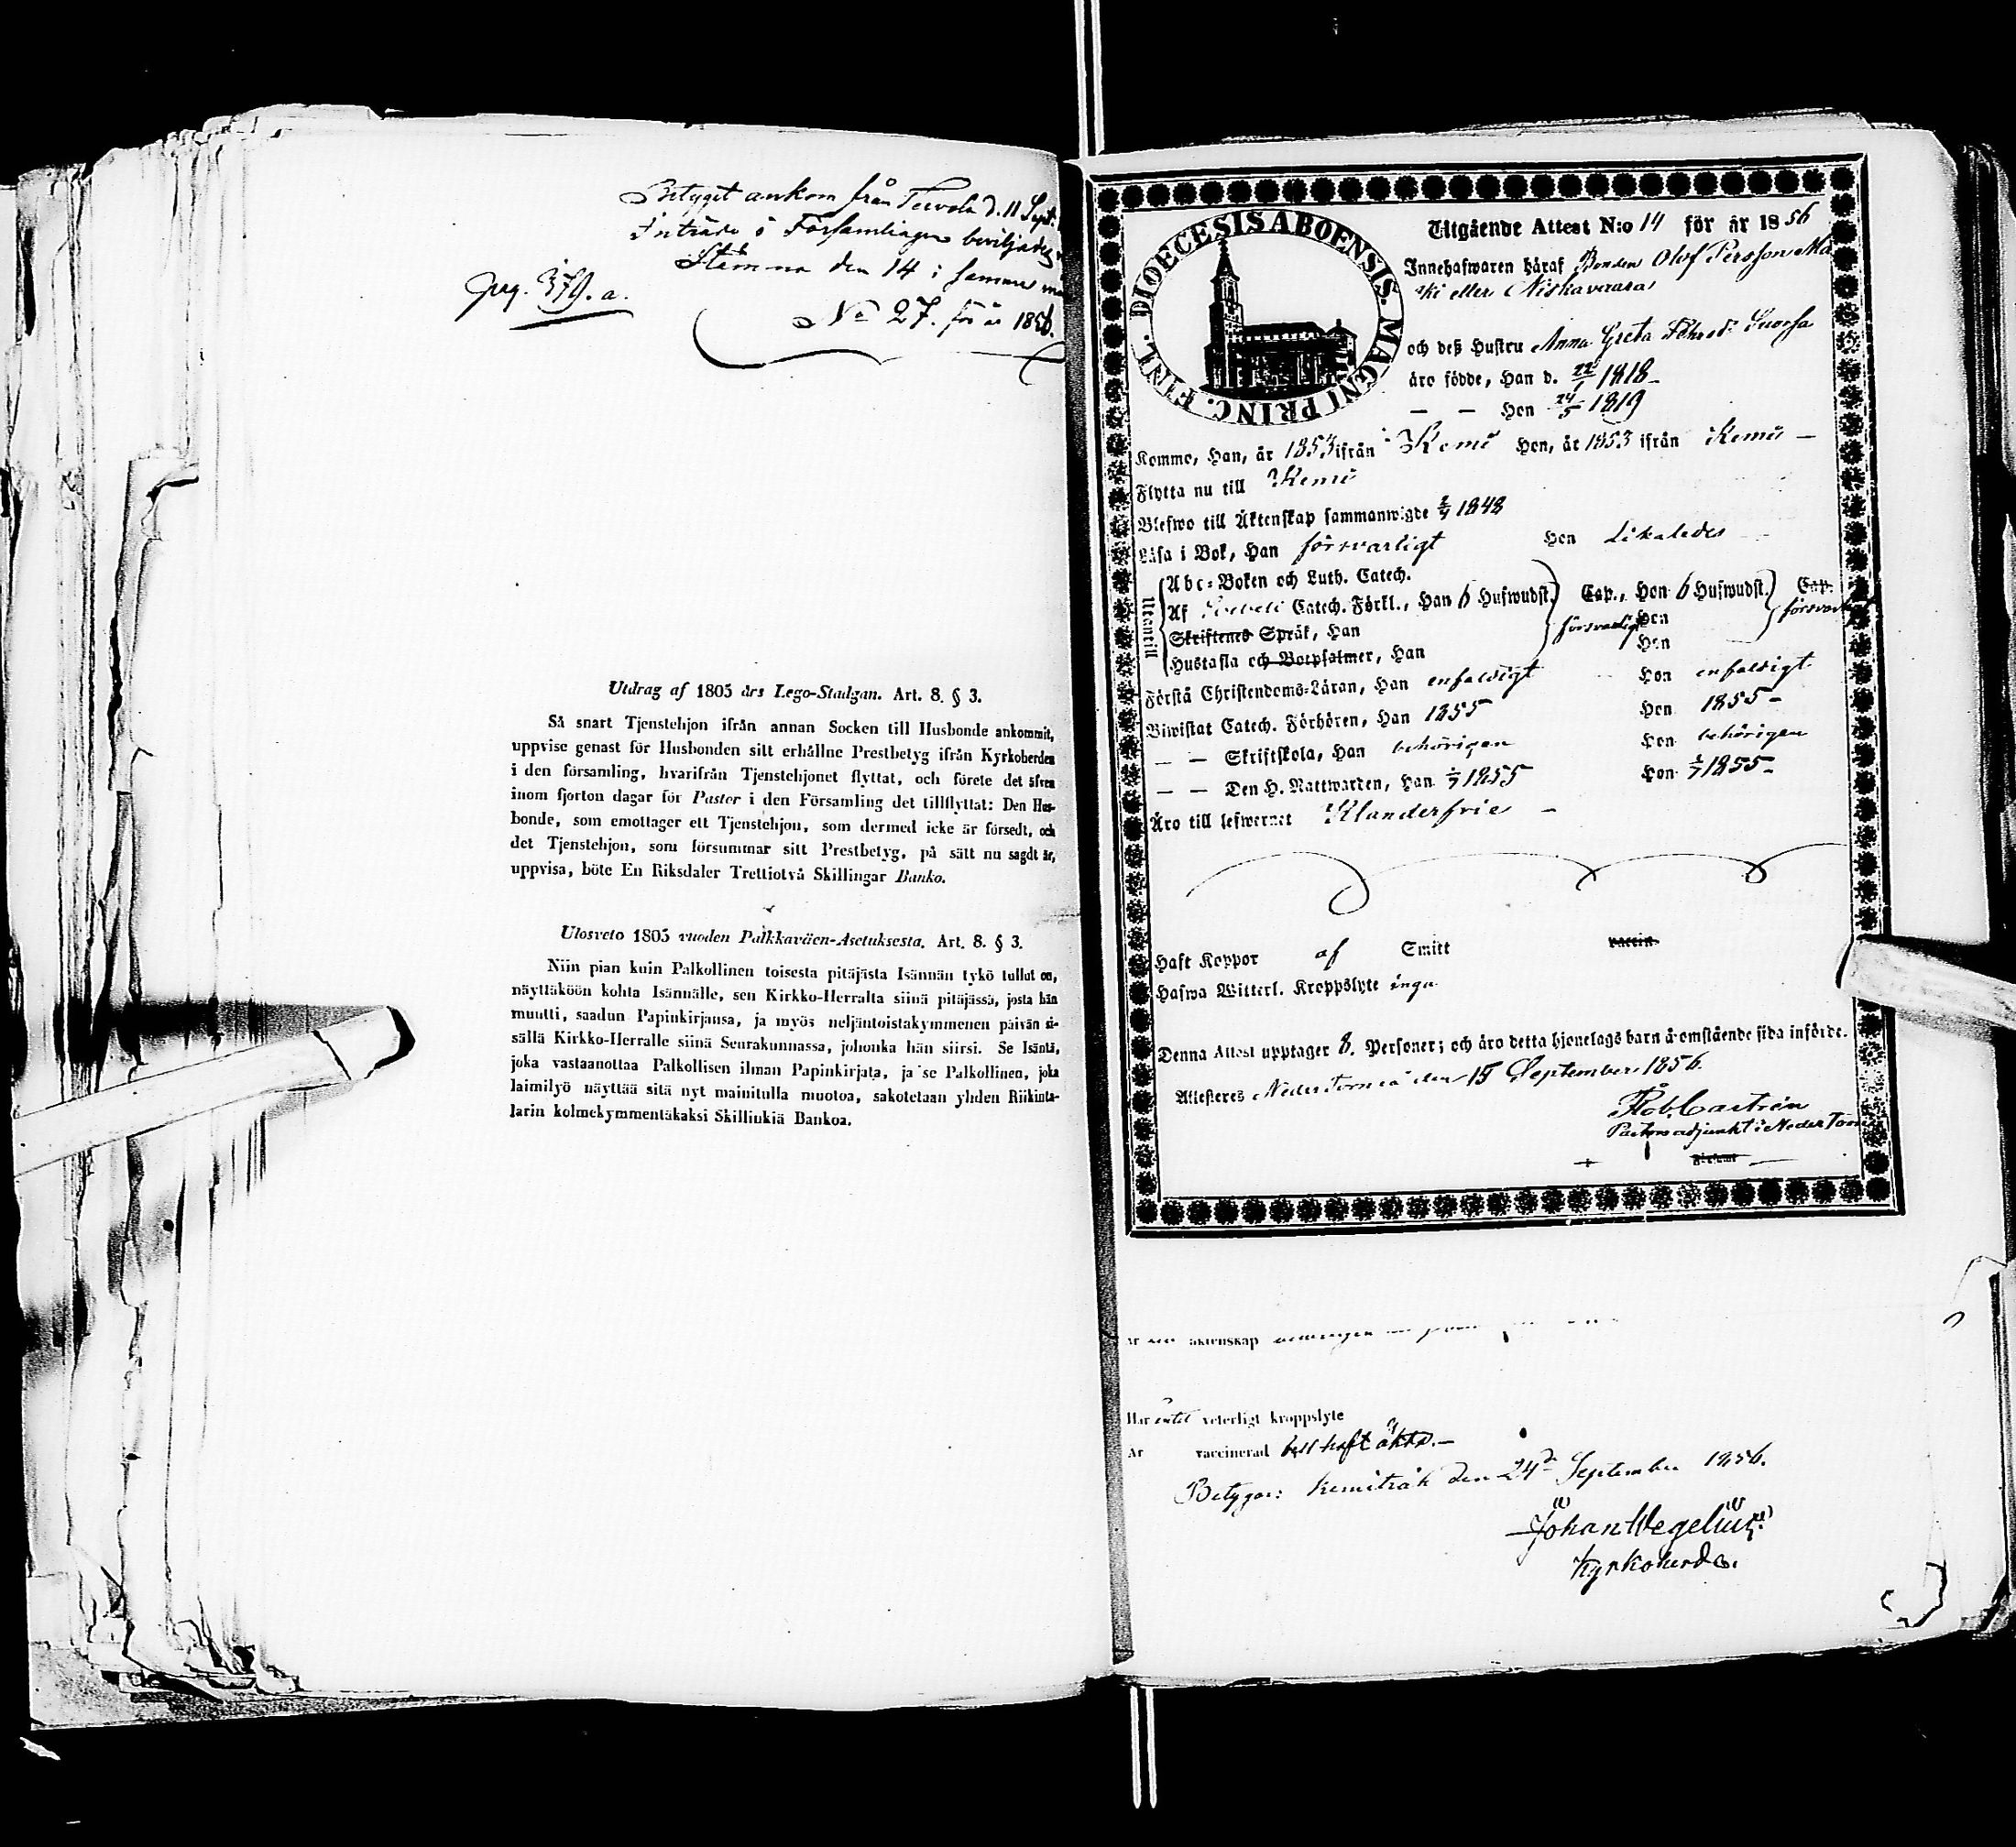 Betyget ankom från Tervola d. 11 Sept.
Inträde i Församlingen beviljades
Stämma den 14 i samma
pag. 379. a.
No 27. för år 1856.
Utdrag af 1805 års Lego-Stadgan. Art. 8. § 3.
Så snart Tjenstehjon ifrån annan Socken till Husbonde ankommit,
uppvise genast för Husbonden sitt erhållne Prestbetyg ifrån Kyrkoherden
i den församling, hvarifrån Tjenstehjonet flyttat, och förete det äfven
inom fjorton dagar för Pastor i den Församling det tillflyttat: Den Hus-
bonde, som emottager ett Tjenstehjon, som dermed icke är försedt, och
det Tjenstehjon, som försummar sitt Prestbetyg, på sätt nu sagdt är,
uppvisa, böte En Riksdaler Trettiotvå Skillingar Banko.
Ulosveto 1805 vuoden Palkkaväen-Asetuksesta. Art. 8. § 3.
Niin pian kuin Palkollinen toisesta pitäjästä Isännän tykö tullut on,
näyttäköön kohta Isännälle, sen Kirkko-Herralta siinä pitäjässä, josta hän
muutti, saadun Papinkirjansa, ja myös neljäntoistakymmenen päivän si-
sällä Kirkko-Herralle siinä Seurakunnassa, johonka hän siirsi. Se Isäntä,
joka vastaanottaa Palkollisen ilman Papinkirjata, ja se Palkollinen, joka
laimilyö näyttää sitä nyt mainitulla muotoa, sakotetaan yhden Riikinta-
larin kolmekymmentäkaksi Skillinkiä Bankoa.
DIOECESIS ABOENSIS. MAGNI PRINC. FINL.
Utgående Attest N:o 14 för år 1856
Innehafwaren häraf Bonden Olof Persson Mä
ki eller Niskavaara
och deß Hustru Anna Greta Suorsa
äro födde, Han d. 22/1 1818
— — Hon 24/5 1819
Kommo, Han, år 1853 ifrån Kemi Hon, år 1853 ifrån Kemi —
Flytta nu till Kemi
Blefwo till Äktenskap sammanwigde 2/4 1848
Läsa i Bok, Han försvarligt Hon Likaledes
Utantill
Abc-Boken och Luth. Catech.
Af Svebeli Catech. Förkl., Han 6 Hufwudst. Cap., Hon 6 Hufwudst. Cap.
försvarligt
Skriftenes Språk, Han försvarligt Hon
Hustafla och Botpsalmer, Han Hon
Förstå Christendoms-Läran, Han enfaldigt Hon enfaldigt
Biwistat Catech. Förhören, Han 1855 Hon 1855 -
— — Skriftskola, Han behörigen Hon behörigen
— — Den H. Nattwarden, Han 1855 Hon 1855 -
Äro till lefwernet Klanderfrie —
Haft Koppor af Smitt vaccin
Hafwa Witterl. Kroppslyte inga
Denna Attest upptager 8. Personer; och äro detta hjonelags barn å omstående sida införde.
Attesteres Neder Torneå den 15 September 1856.
Rob. Castrén
Pastorsadjunkt i Neder Torneå
äktenskap
Har intet veterligt kroppslyte
Är vaccinerad haft äkta. —
Betygar: Kemiträsk den 24de September 1856.
Johan Wegelius
Kyrkoherde.